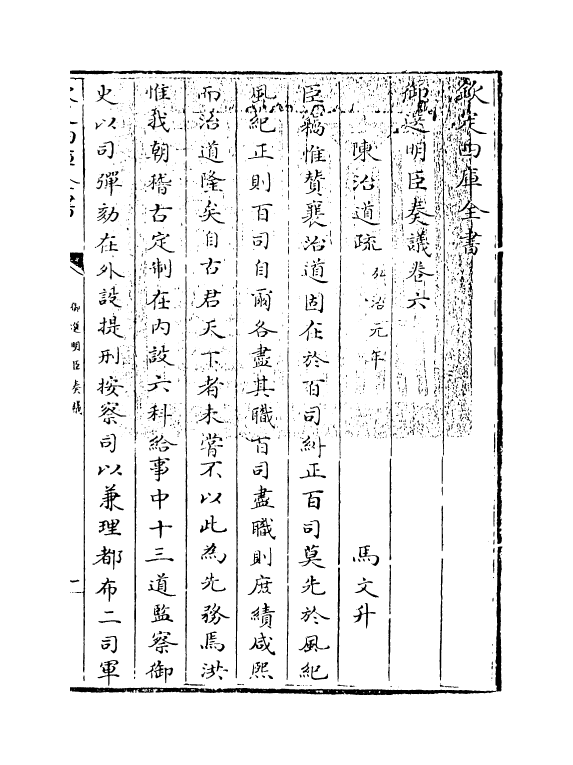 欽定四庫全書
御選明臣奏議卷六
陳治道疏弘治元年 馬文升
臣竊惟贊襄治道固在於百司糾正百司莫先於風紀
風紀正則百司自爾各盡其職百司盡職則庶績咸熙
而治道隆矣自古君天下者未嘗不以此為先務焉洪
惟我朝稽古定制在内設六科給事中十三道監察御
史以司彈劾在外設提刑按察司以兼理都布二司軍
御選明臣奏議
一